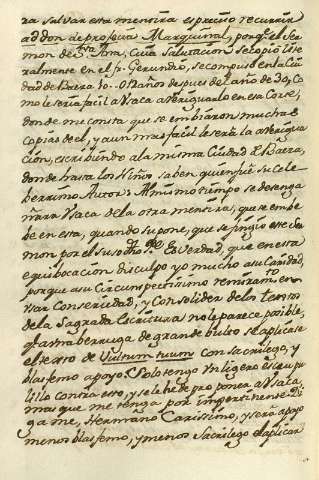 ra salvar esta mentira es preciso recurrir
al don de profecia Marquina, porq.e el Ser
mon de S.ta Ana, cuia Salutacion se copiò lite
ralmente en el fr. Gerundio, se compuso en la Ciu
dad de Baeza 10. o 12 años despues del año de 30, Co
mo le serìa facil a Ysaca averiguarlo en esa Corte,
donde me consta que se embiaron muchas
copias de el, y aun mas facil le serìa la averigua
cion, escribiendo a la misma Ciudad de Baeza,
donde hasta los Niños saben quien fuè su Cele
berrimo Autor. Al mismo tiempo se desenga
ñarà Ysaca de la otra mentira, que se embe
be en esta, quando supone, que se fingiò este Ser
mon por el susodho. Es verdad, que en esta
equibocacion disculpo yo mucho a su Caridad,
porque a su Circunspectissimo
usar Con seriedad, y Con solidez de los textos
de la Sagrada Escritura no le parece posible,
q.e a una berruga de grande bulto se aplicase
el texto de Vultum tuum con sacrilego, y
blasfemo apoyo. Solo tengo Un ligero escru pu
lillo contra esto, y se le he de proponer a Ysaca,
mas que me tenga por impertinente. Di
game, Hermano Carissimo, y serà apoyo
menos blasfemo, y menos Sacrilego el aplicar